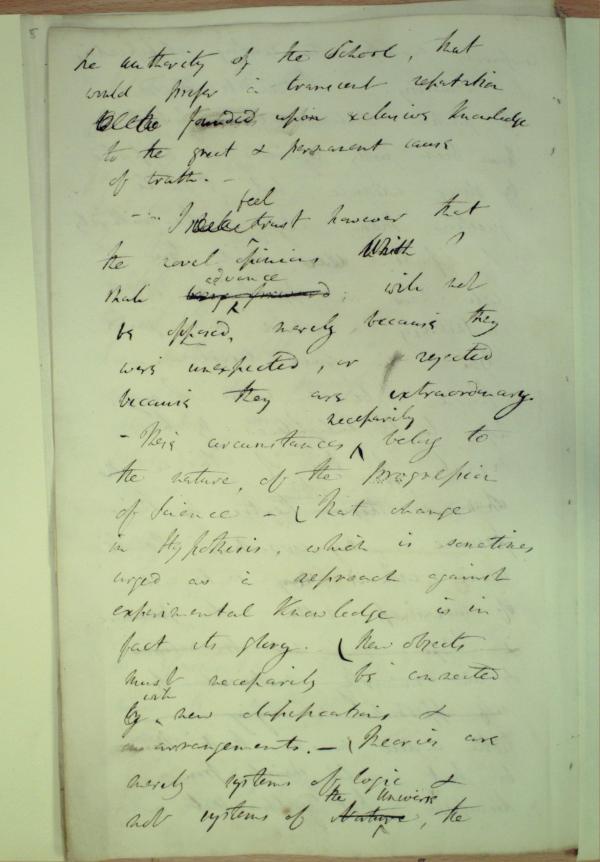 he authority of the School, that
would prefer a transient reputation
founded upon exclusive knowledge
to the great & permanent cause
of truth. –
feel
I trust however that
the novel opinions Which I
advance
shall bring forward; will not
be opposed, merely because they
were unexpected, or rejected
because they are extraordinary.
necessarily
– These circumstances belong to
the nature, of the Progression
of Science – That change
in Hypothesis, which is sometimes
urged as a reproach against
experimental Knowledge is in
fact its glory. New objects
must necessarily be connected
with
by new classifications &
arrangements. – Theories are
merely systems of logic &
the Universe
not systems of Nature, the